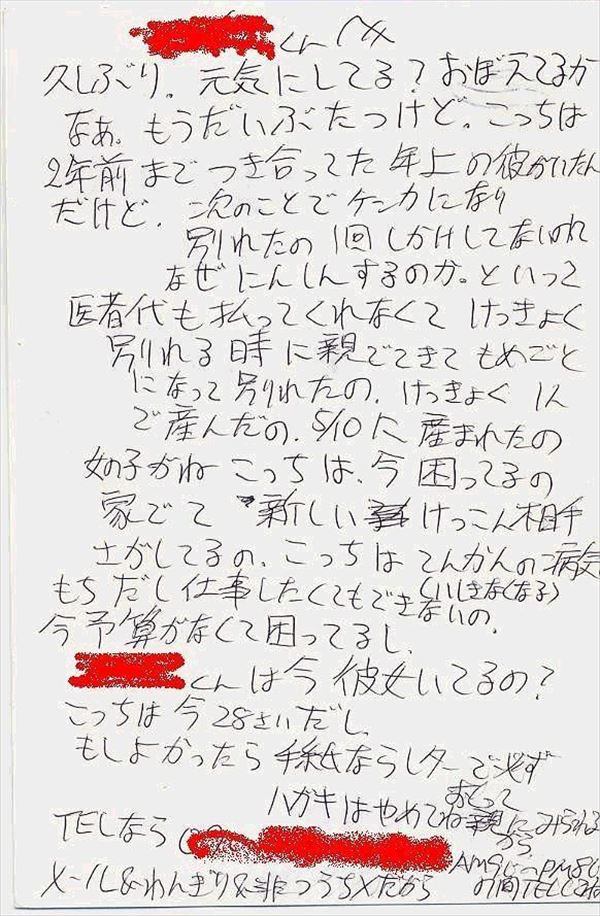 くんへ
久しぶり。元気にしてる？おぼえてるか
なぁ。もうだいぶたつけど。こっちは
2年前までつき合ってた年上の彼がいたん
だけど。次のことでケンカになり
別れたの1回しかけしてないのに
なぜにんしんするのか。といって
医者代も払ってくれなくてけっきょく
別れる時に親でてきてもめごと
になって別れたの。けっきょく1人
で産んだの。5/10に産まれたの
女の子がねこっちは、今困ってるの
家でて新しいけっこん相手
さがしてるの。こっちはてんかんの病気
もちだし仕事したくてもできないの。
(いしきなくなる)
今予算がなくて困ってるし、
くんは今彼女いてるの？
こっちは今28さいだし、
もしよかったら手紙ならレターで必ず
おくって
ハガキはやめてね親にみられる
から
TELなら
AM9じ〜PM8じ
の間TEL
メール&わんぎり&非つうちXだから